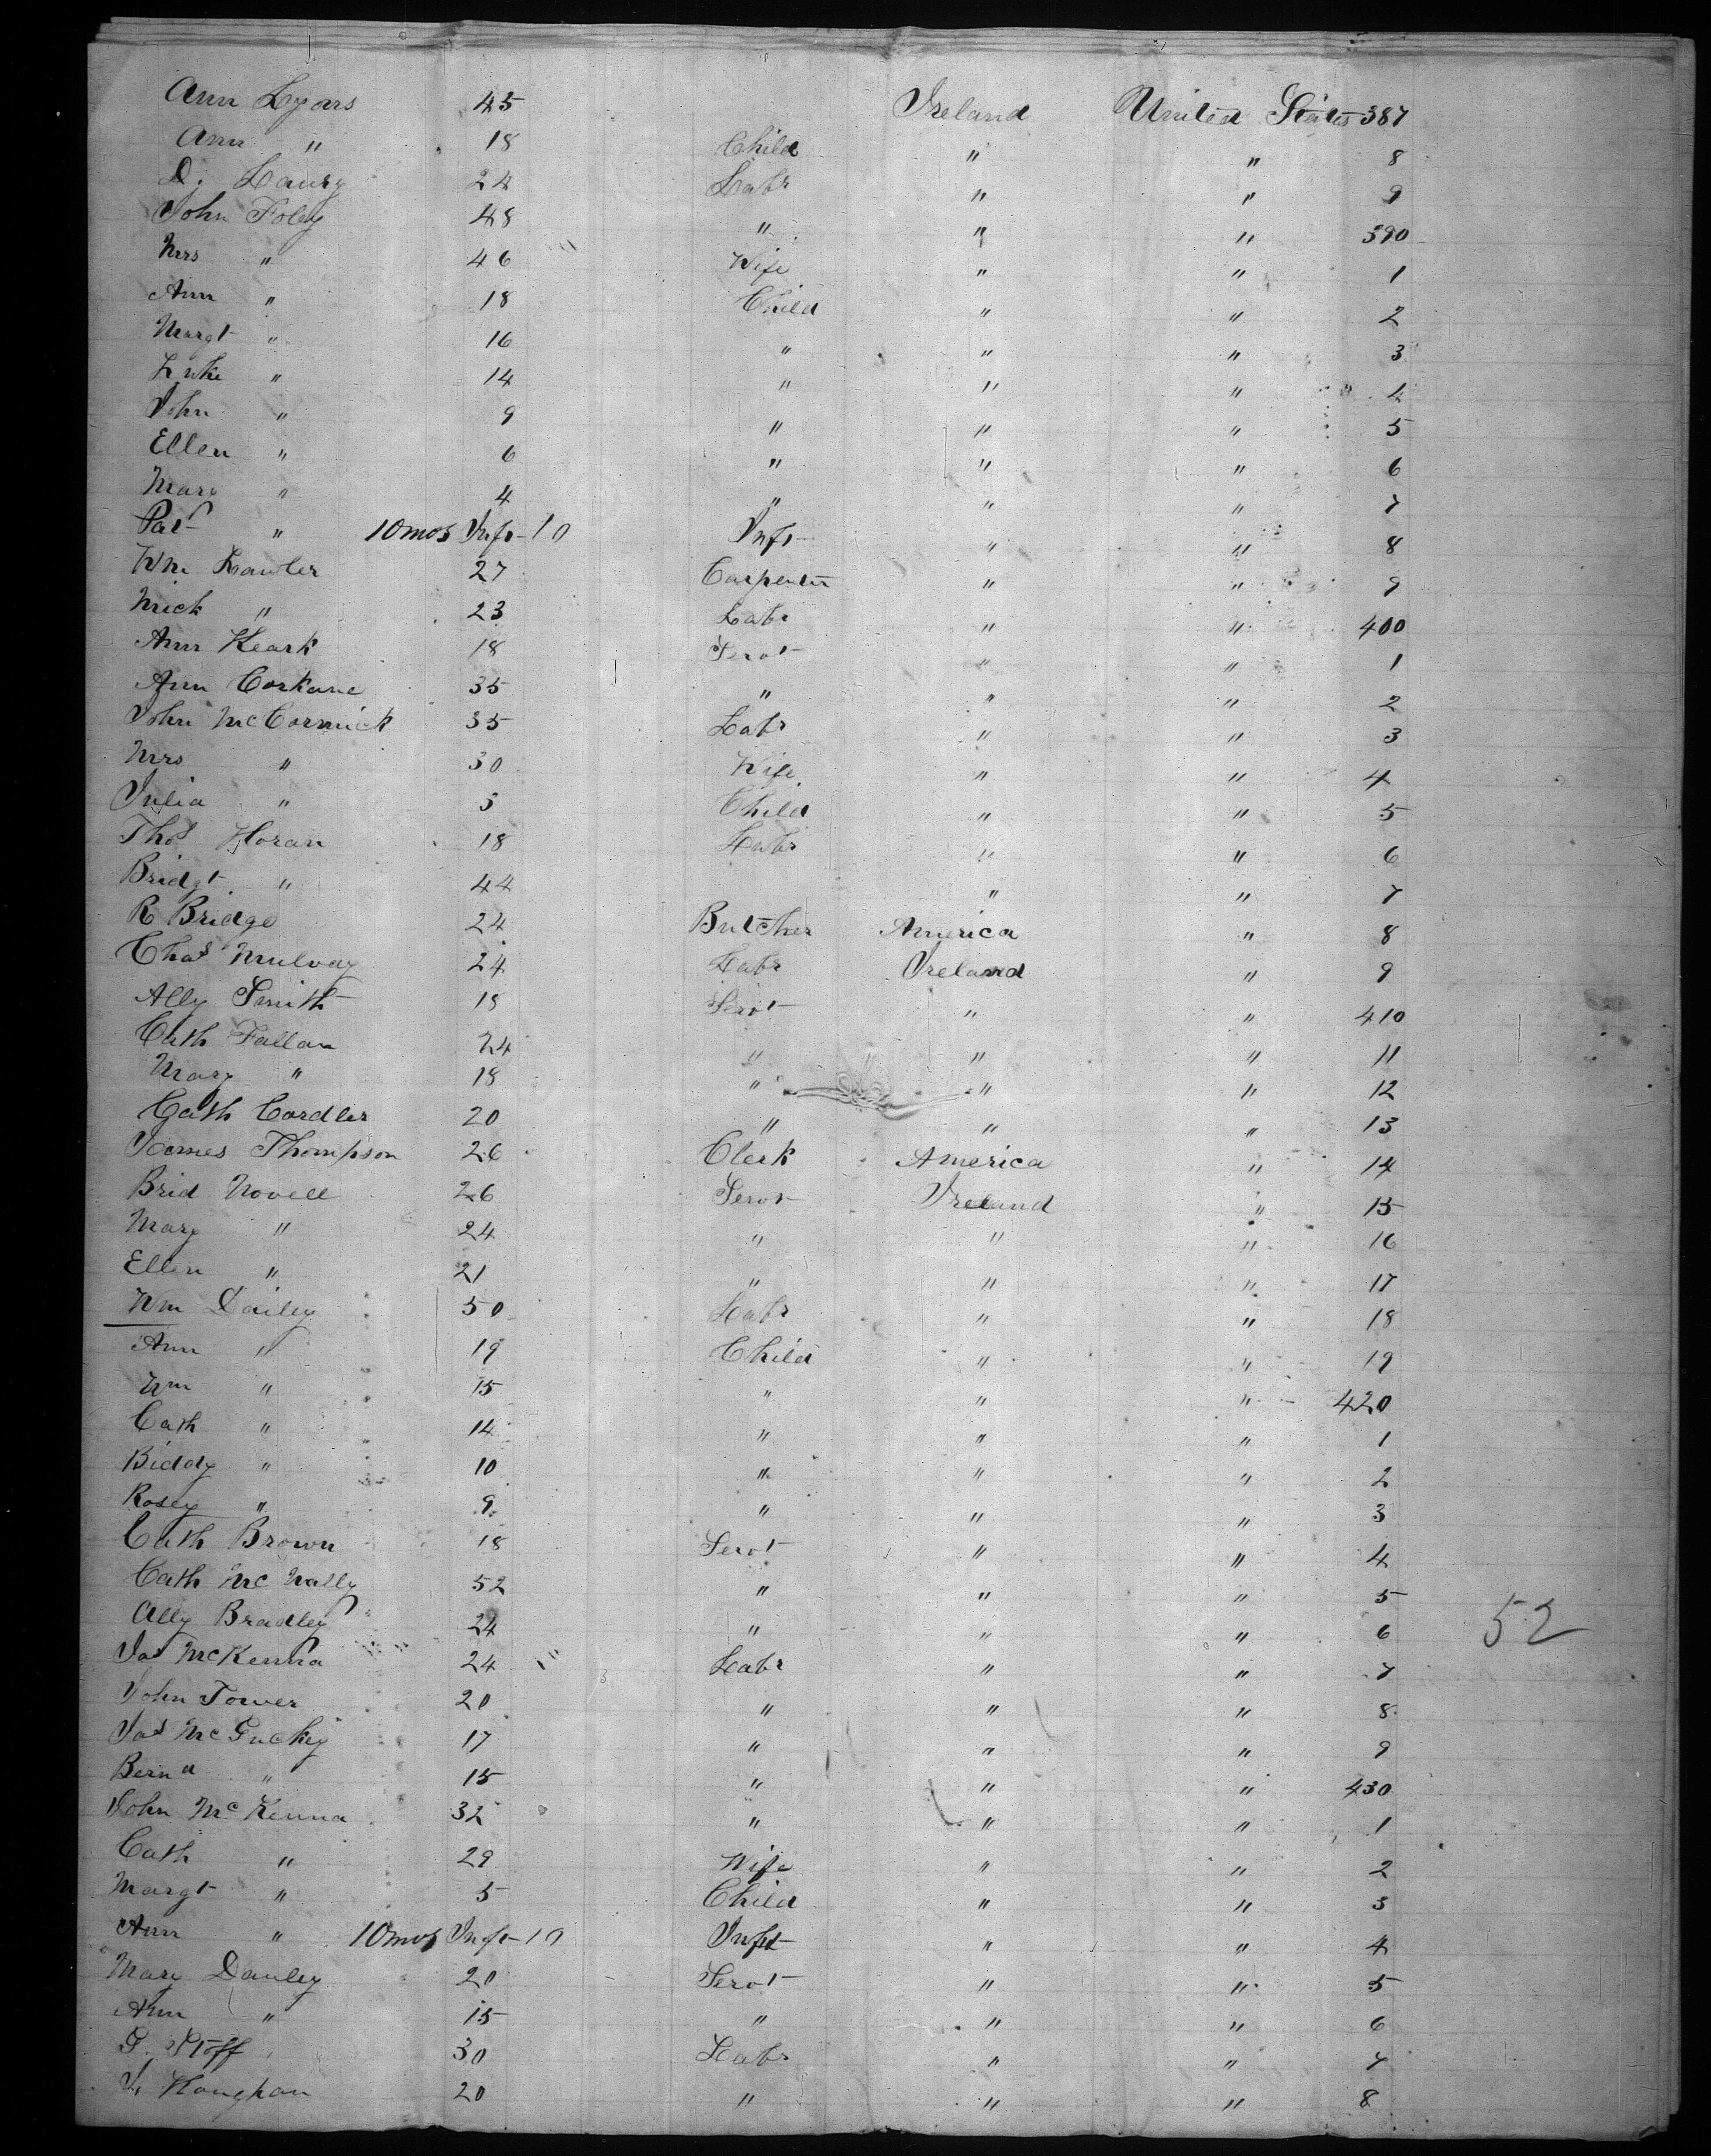 Ann Lyons 45 Ireland United States 387
Ann " 18 Child " " 8
D. 24 Labr " " 9
John Foley 48 " " " 390
Mrs " 46 Wife " " 1
Ann " 18 Child " " 2
Margt " 16 " " " 3
Luke " 14 " " " 4
John " 9 " " " 5
Ellen " 6 " " " 6
Mary " 4 " " " 7
Pat " 10mos Inft 10 Inft " " 8
Wm Lawler 27 Carpenter " " 9
Mick " 23 Labr " " 400
Ann Keark 18 Servt " " 1
Ann Corkane 35 " " " 2
John McCormick 35 Labr " " 3
Mrs " 30 Wife " " 4
Julia " 5 Child " " 5
Thos Horan 18 Labr " " 6
Bridgt " 44 " " 7
R Bridge 24 Butcher America " 8
Chas Mulvay 24 Labr Ireland " 9
Ally Smith 18 Servt " " 410
Cath Fallan 24 " " " 11
Mary " 18 " " " 12
Cath Cordler 20 " " " 13
James Thompson 26 Clerk America " 14
Brid Novell 26 Servt Ireland " 15
Mary " 24 " " " 16
Ellen " 21 " " " 17
Wm Dailey 50 Labr " " 18
Ann " 19 Child " " 19
Wm " 15 " " " 420
Cath " 14 " " " 1
Biddy " 10 " " " 2
Rosey " 9 " " " 3
Cath Brown 18 Servt " " 4
Cath McNally 52 " " " 5
Ally Bradley 24 " " " 6
52
Jas McKenna 24 Labr " " 7
John Tower 20 " " " 8
Jas McGuckey 17 " " " 9
Bernd " 15 " " " 430
John McKenna 32 " " " 1
Cath " 29 Wife " " 2
Margt " 5 Child " " 3
Ann " 10mos Inft 10 Inft " " 4
Mary Danley 20 Servt " " 5
Ann " 15 " " " 6
Stoff 30 Labr " " 7
Houghan 20 " " " 8